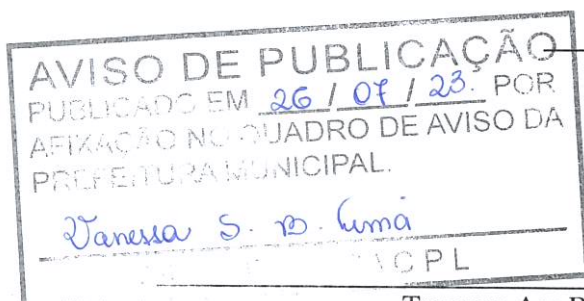 AVISO DE PUBLICAÇÃO
PUBLICADO EM 26 / 07 / 23. POR
AFIXAÇÃO NO QUADRO DE AVISO DA
PREFEITURA MUNICIPAL.
Vanessa S. B.
CPL